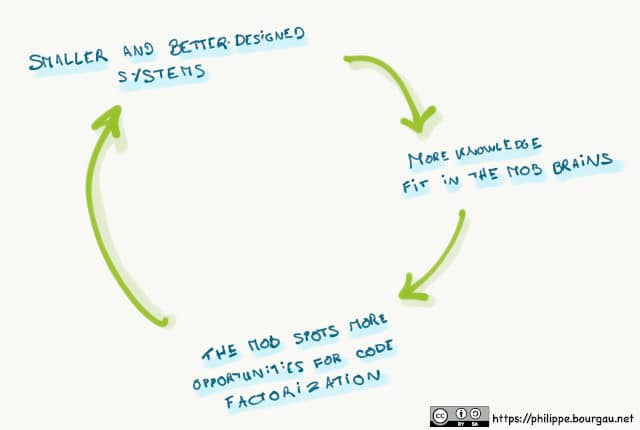 SMALLER AND BETTER-DESIGNED
SYSTEMS
MORE KNOWLEDGE
FIT IN THE MOB BRAINS
THE MOB SPOTS MORE
OPPORTUNITIES FOR CODE
FACTORIZATION
cc BY SA https://philippe.bourgau.net